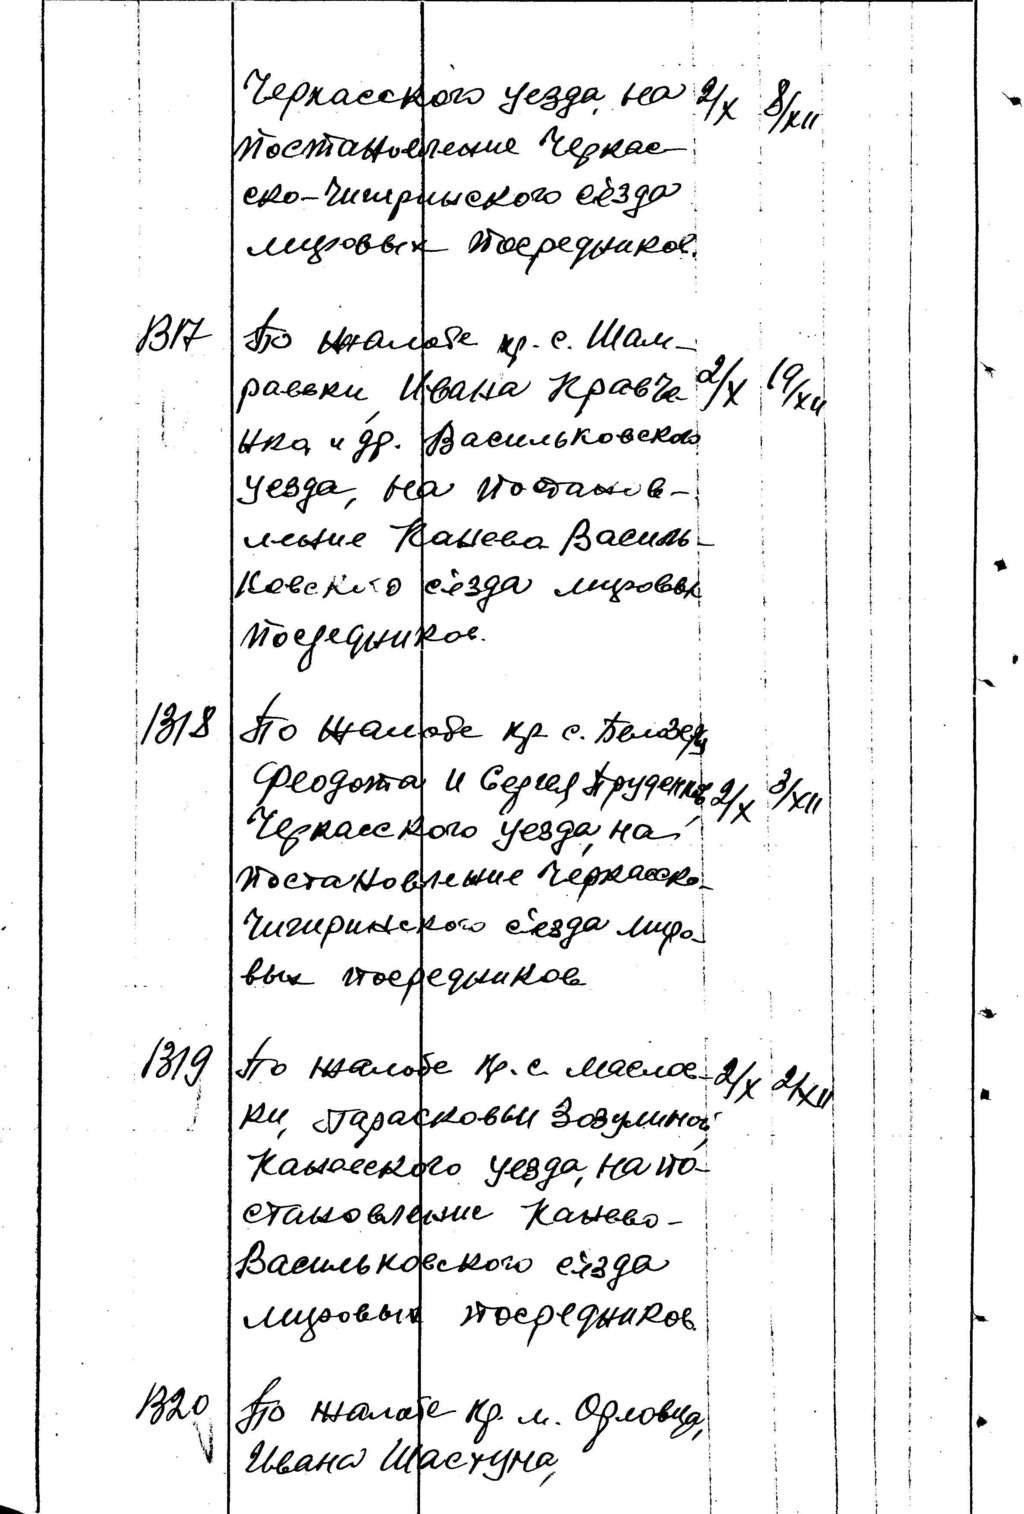 Черкасского уезда, на 2/X 8/XII
постановление Черкас-
ско-Чигиринского сьезда
мировых посредников.
1317 По жалобе кр. с. Шам-
раевки, Ивана Кравче- 2/X 19/XII
нка и др. Васильковского
уезда, на постанов-
ление Канева Василь-
ковского сьезда мировых
посредников.
1318 По жалобе кр. с. Белозерья
Феодота и Сергея Пруденков, 2/X 3/XII
Черкасского уезда, на
постановление Черкасско-
Чигиринского сьезда миро-
вых посредников
1319 По жалобе кр. с. Маслов- 2/X 21/XII
ки, Парасковьи Зозулиной,
Каневского уезда, на по-
становление Канево-
Васильковского сьезда
мировых посредников
1320 По жалобе кр. м. Орловца,
Ивана Шастуна,